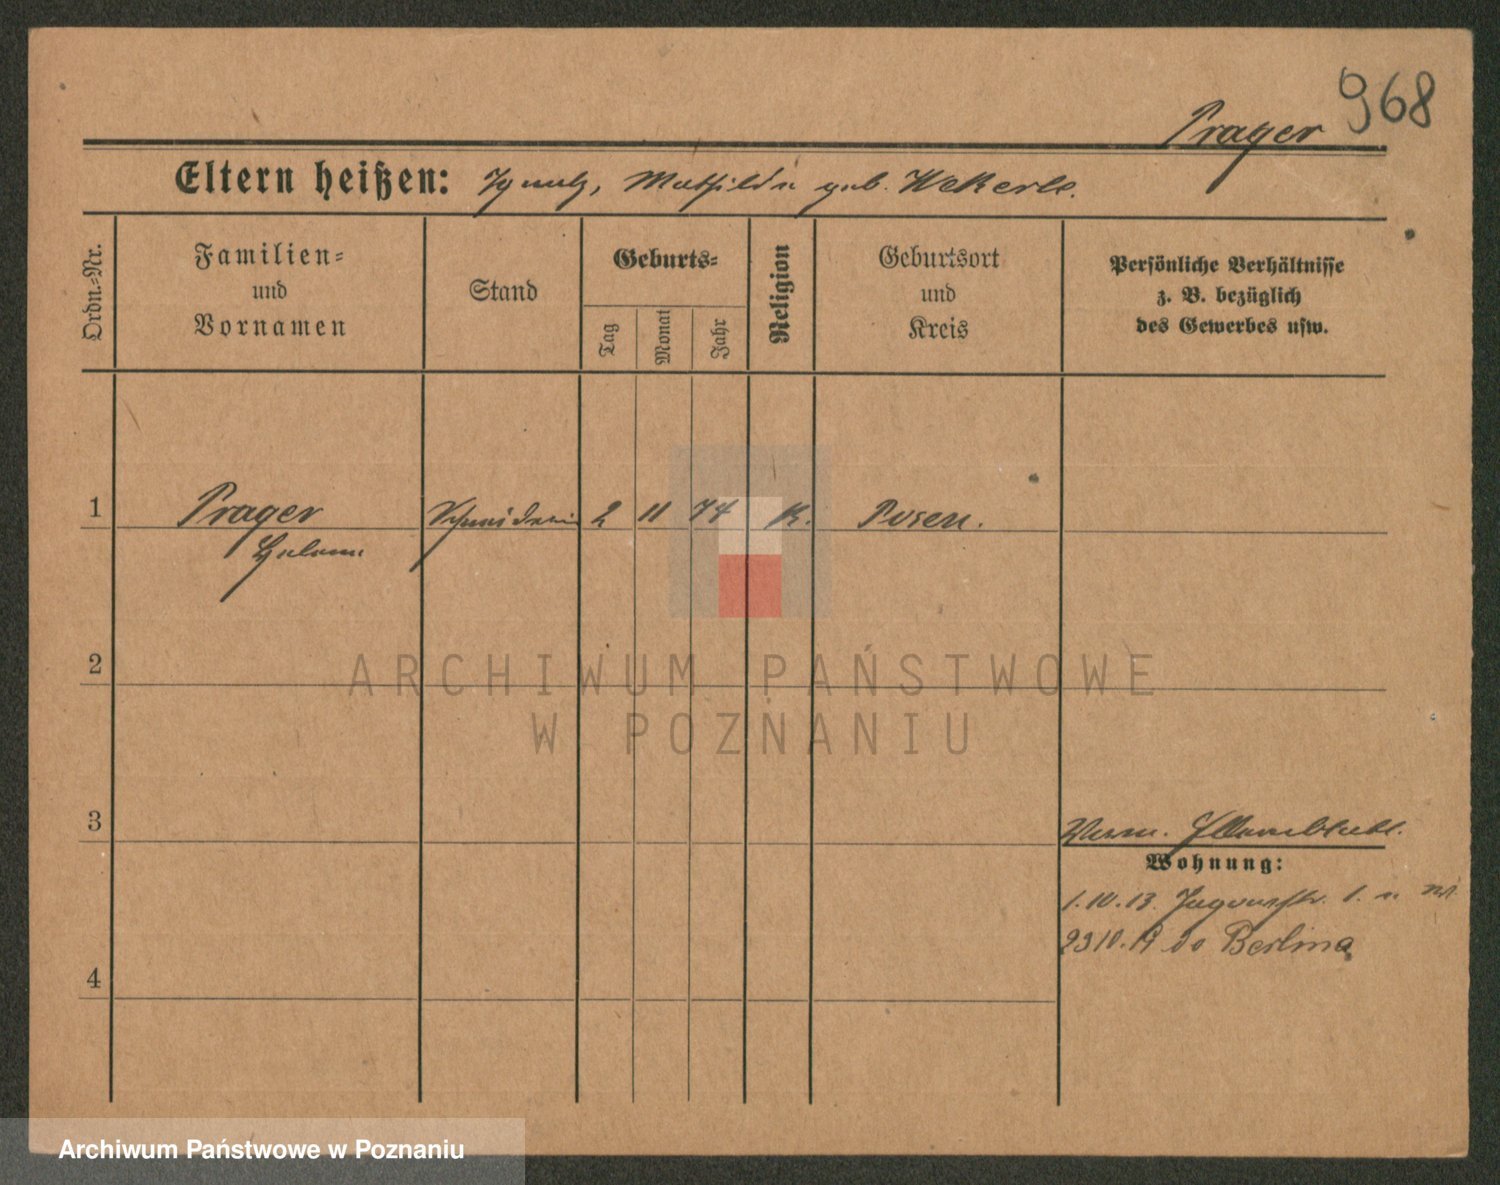 968
Prager
Eltern heißen: Ignatz, Mathilde geb. Wekerle.
Ordn.-Nr.
Familien=
und
Vornamen
Stand
Geburts=
Tag
Monat
Jahr
Religion
Geburtsort
und
Kreis
Persönliche Verhältnisse
z. B. bezüglich
des Gewerbes usw.
1 Prager Schneiderin 2 11 74 K. Posen.
Helene
2
ARCHIWUM PAŃSTWOWE
W POZNANIU
3
Wohnung:
1.10.13. 1.
23 10. 19 do Berlina
4
Archiwum Państwowe w Poznaniu